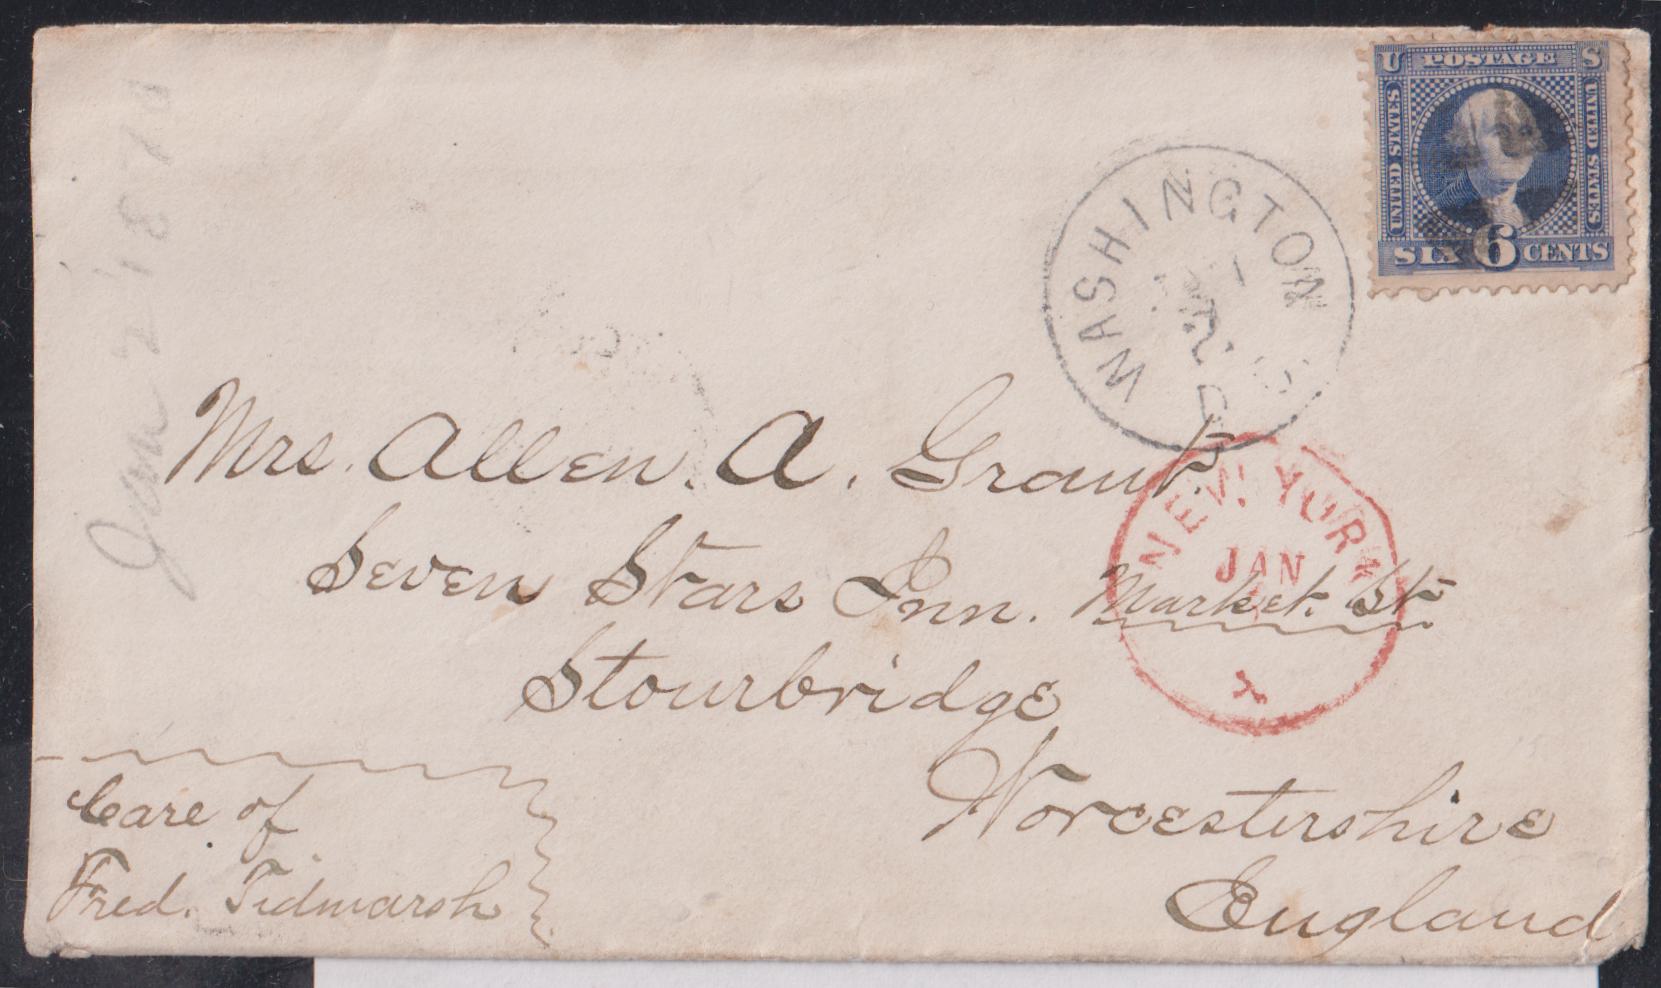 Jan 2 1870
U POSTAGE S
UNITED STATES
UNITED STATES
SIX 6 CENTS
WASHINGTON
NEW YORK
JAN
Mrs. Allen. A. Grant.
Seven Stars Inn. Market. St
Stourbridge
Worcestershire
England
Care of
Fred. Tidmarsh